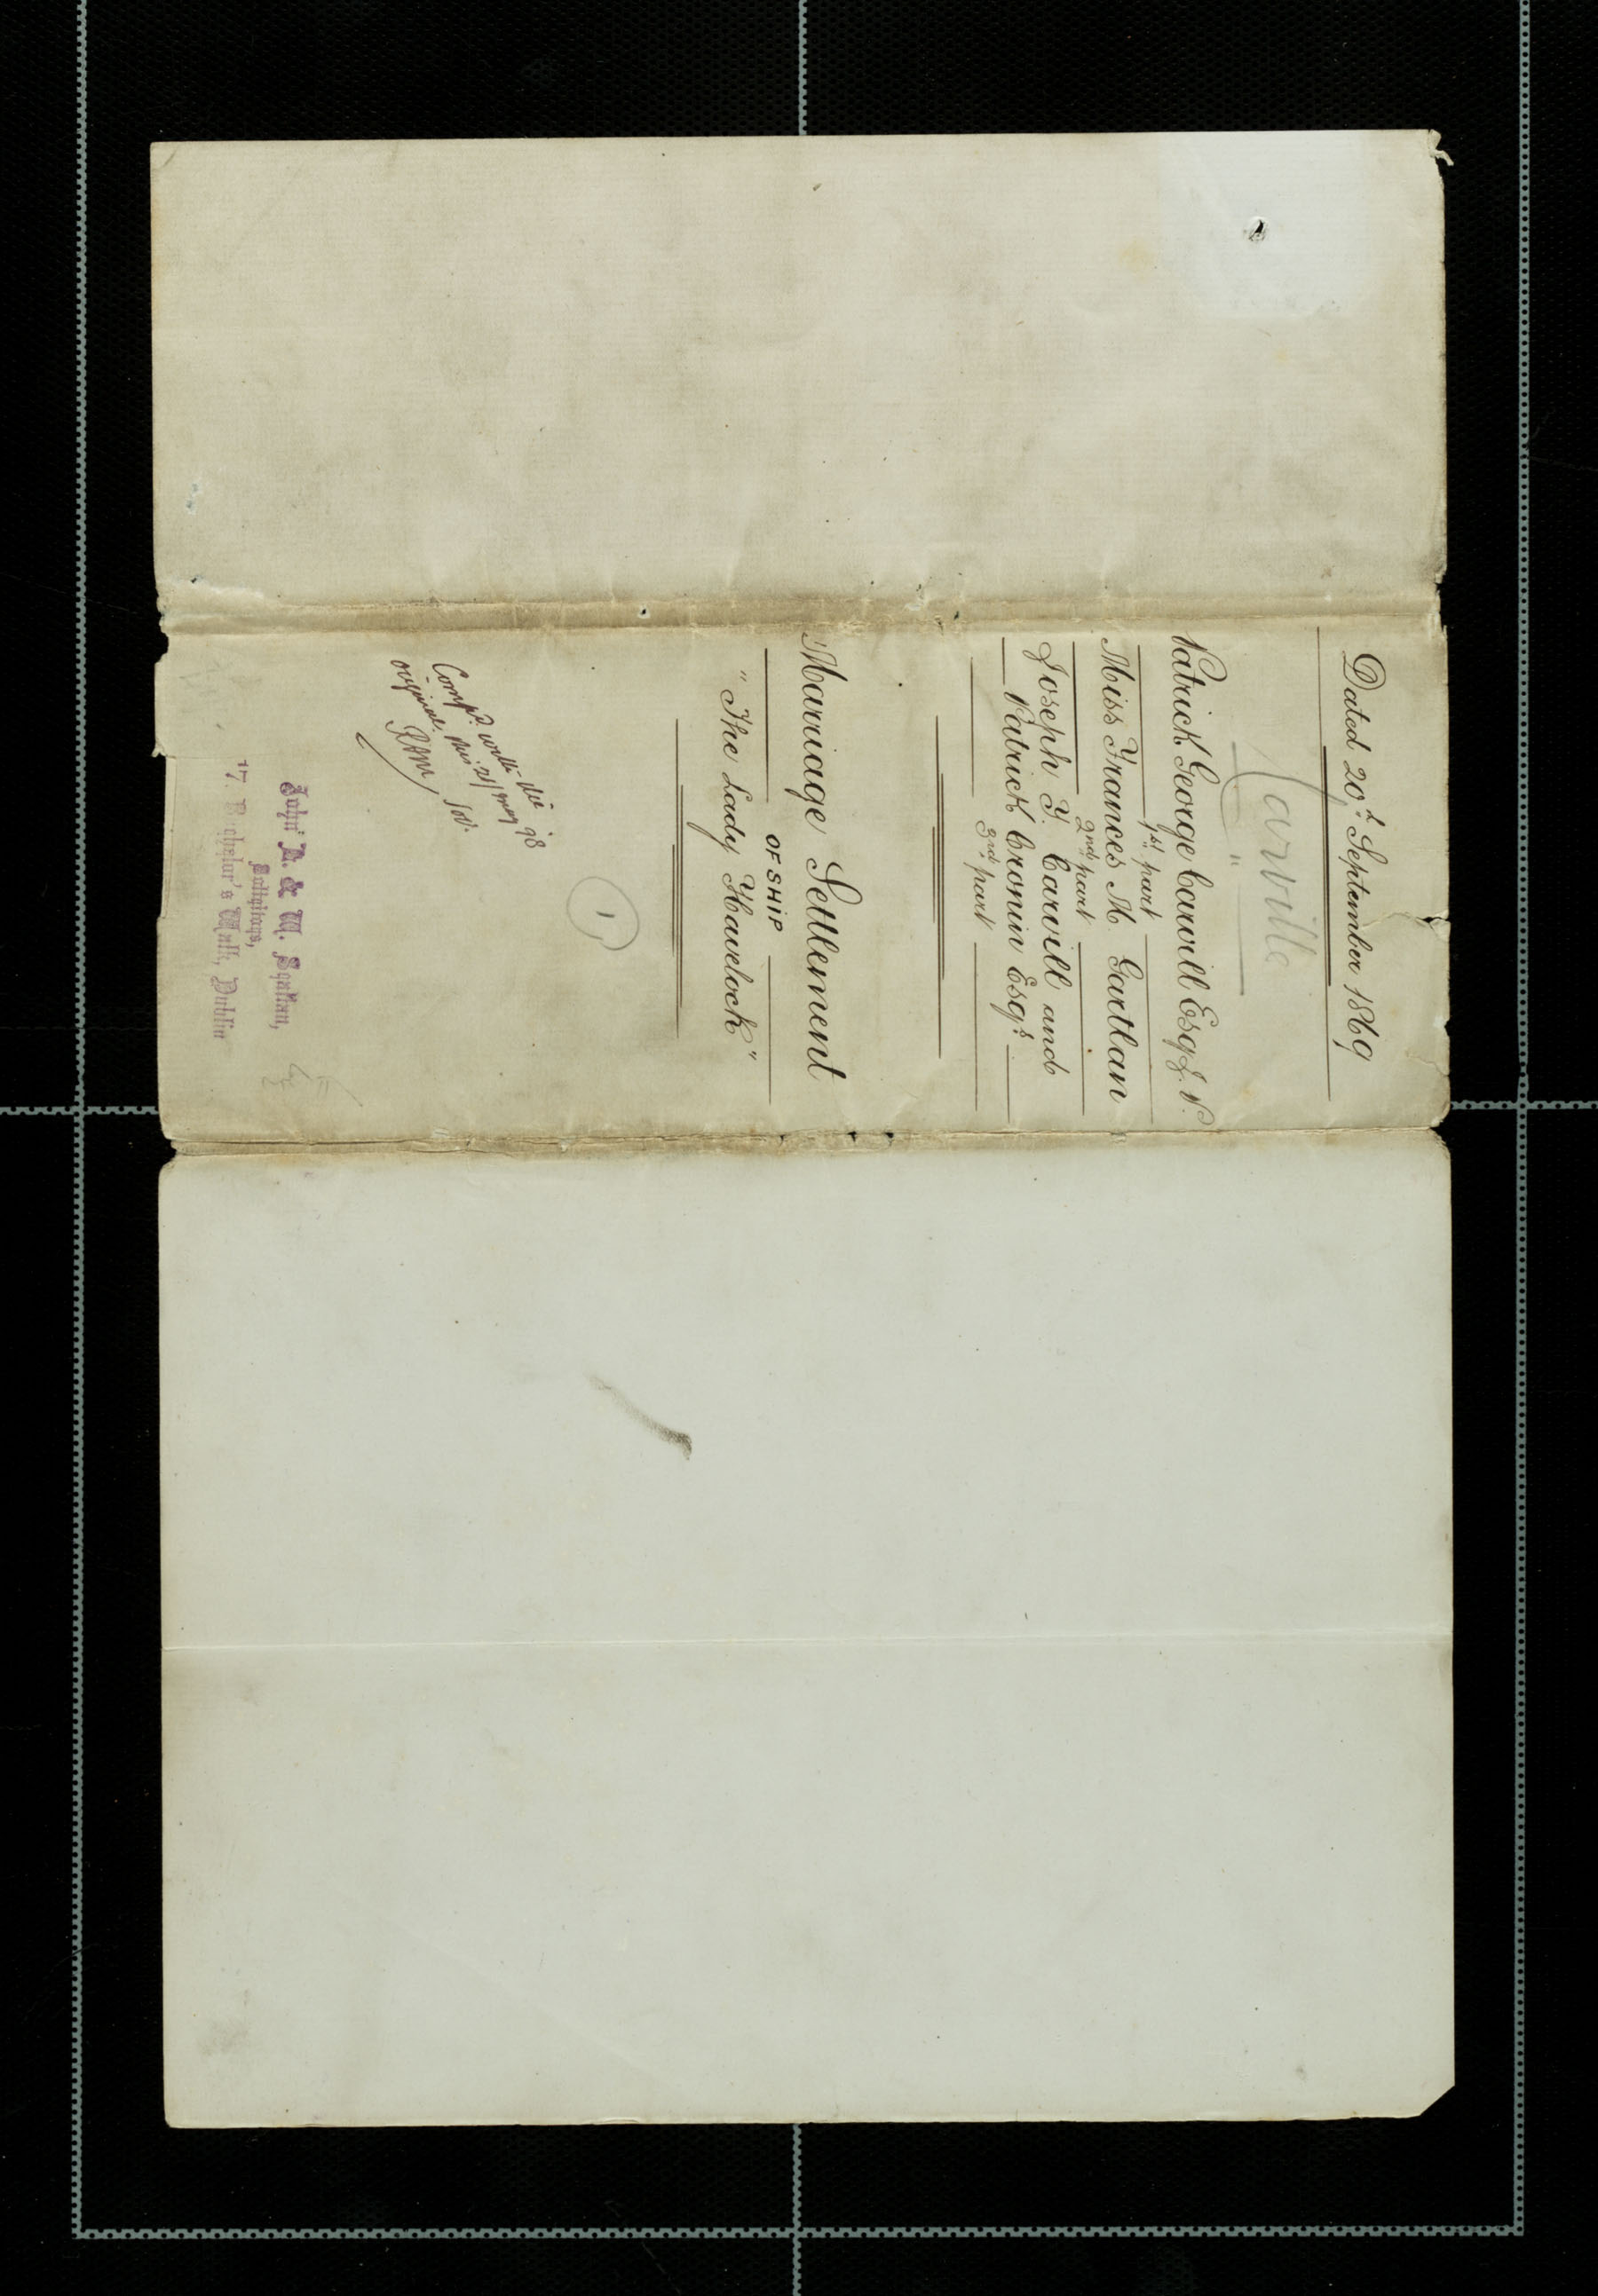 Dated 20th September 1869
Carville
Patrick George Carvill Esq J. P.
1st part
Miss Frances M. Gartlan
2nd part
Joseph F. Carvill and
Patrick Cronin Esqs
3rd part
Marriage Settlement
OF SHIP
"The Lady Havelock"
1
Compd with the
original this 21 May 98
Sol.
John D. & W. Scallan,
Solicitors,
17, Bachelor's Walk, Dublin